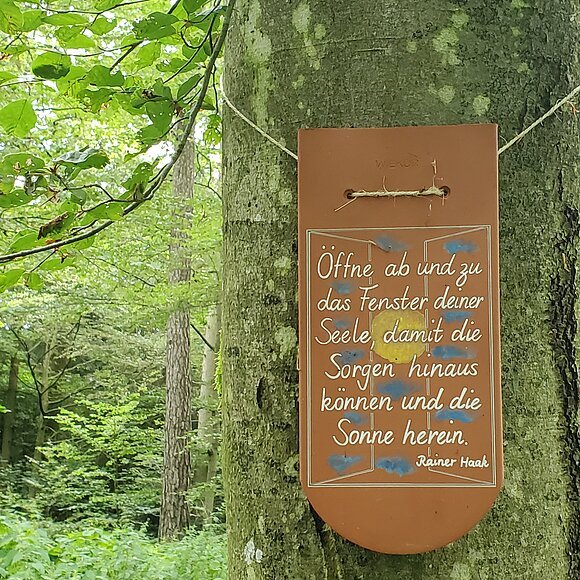 Öffne ab und zu
das Fenster deiner
Seele, damit die
Sorgen hinaus
können und die
Sonne herein.
Rainer Haak